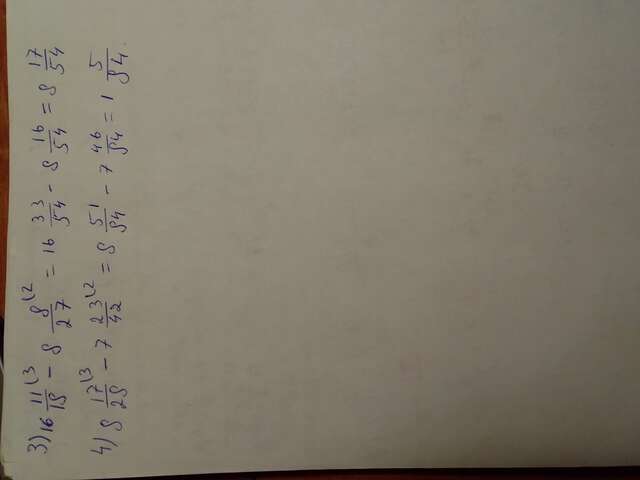 3) 16 11/18 \3 - 8 8/27 \2 = 16 33/54 - 8 16/54 = 8 17/54
4) 8 17/28 \3 - 7 23/42 \2 = 8 51/84 - 7 46/84 = 1 5/84.